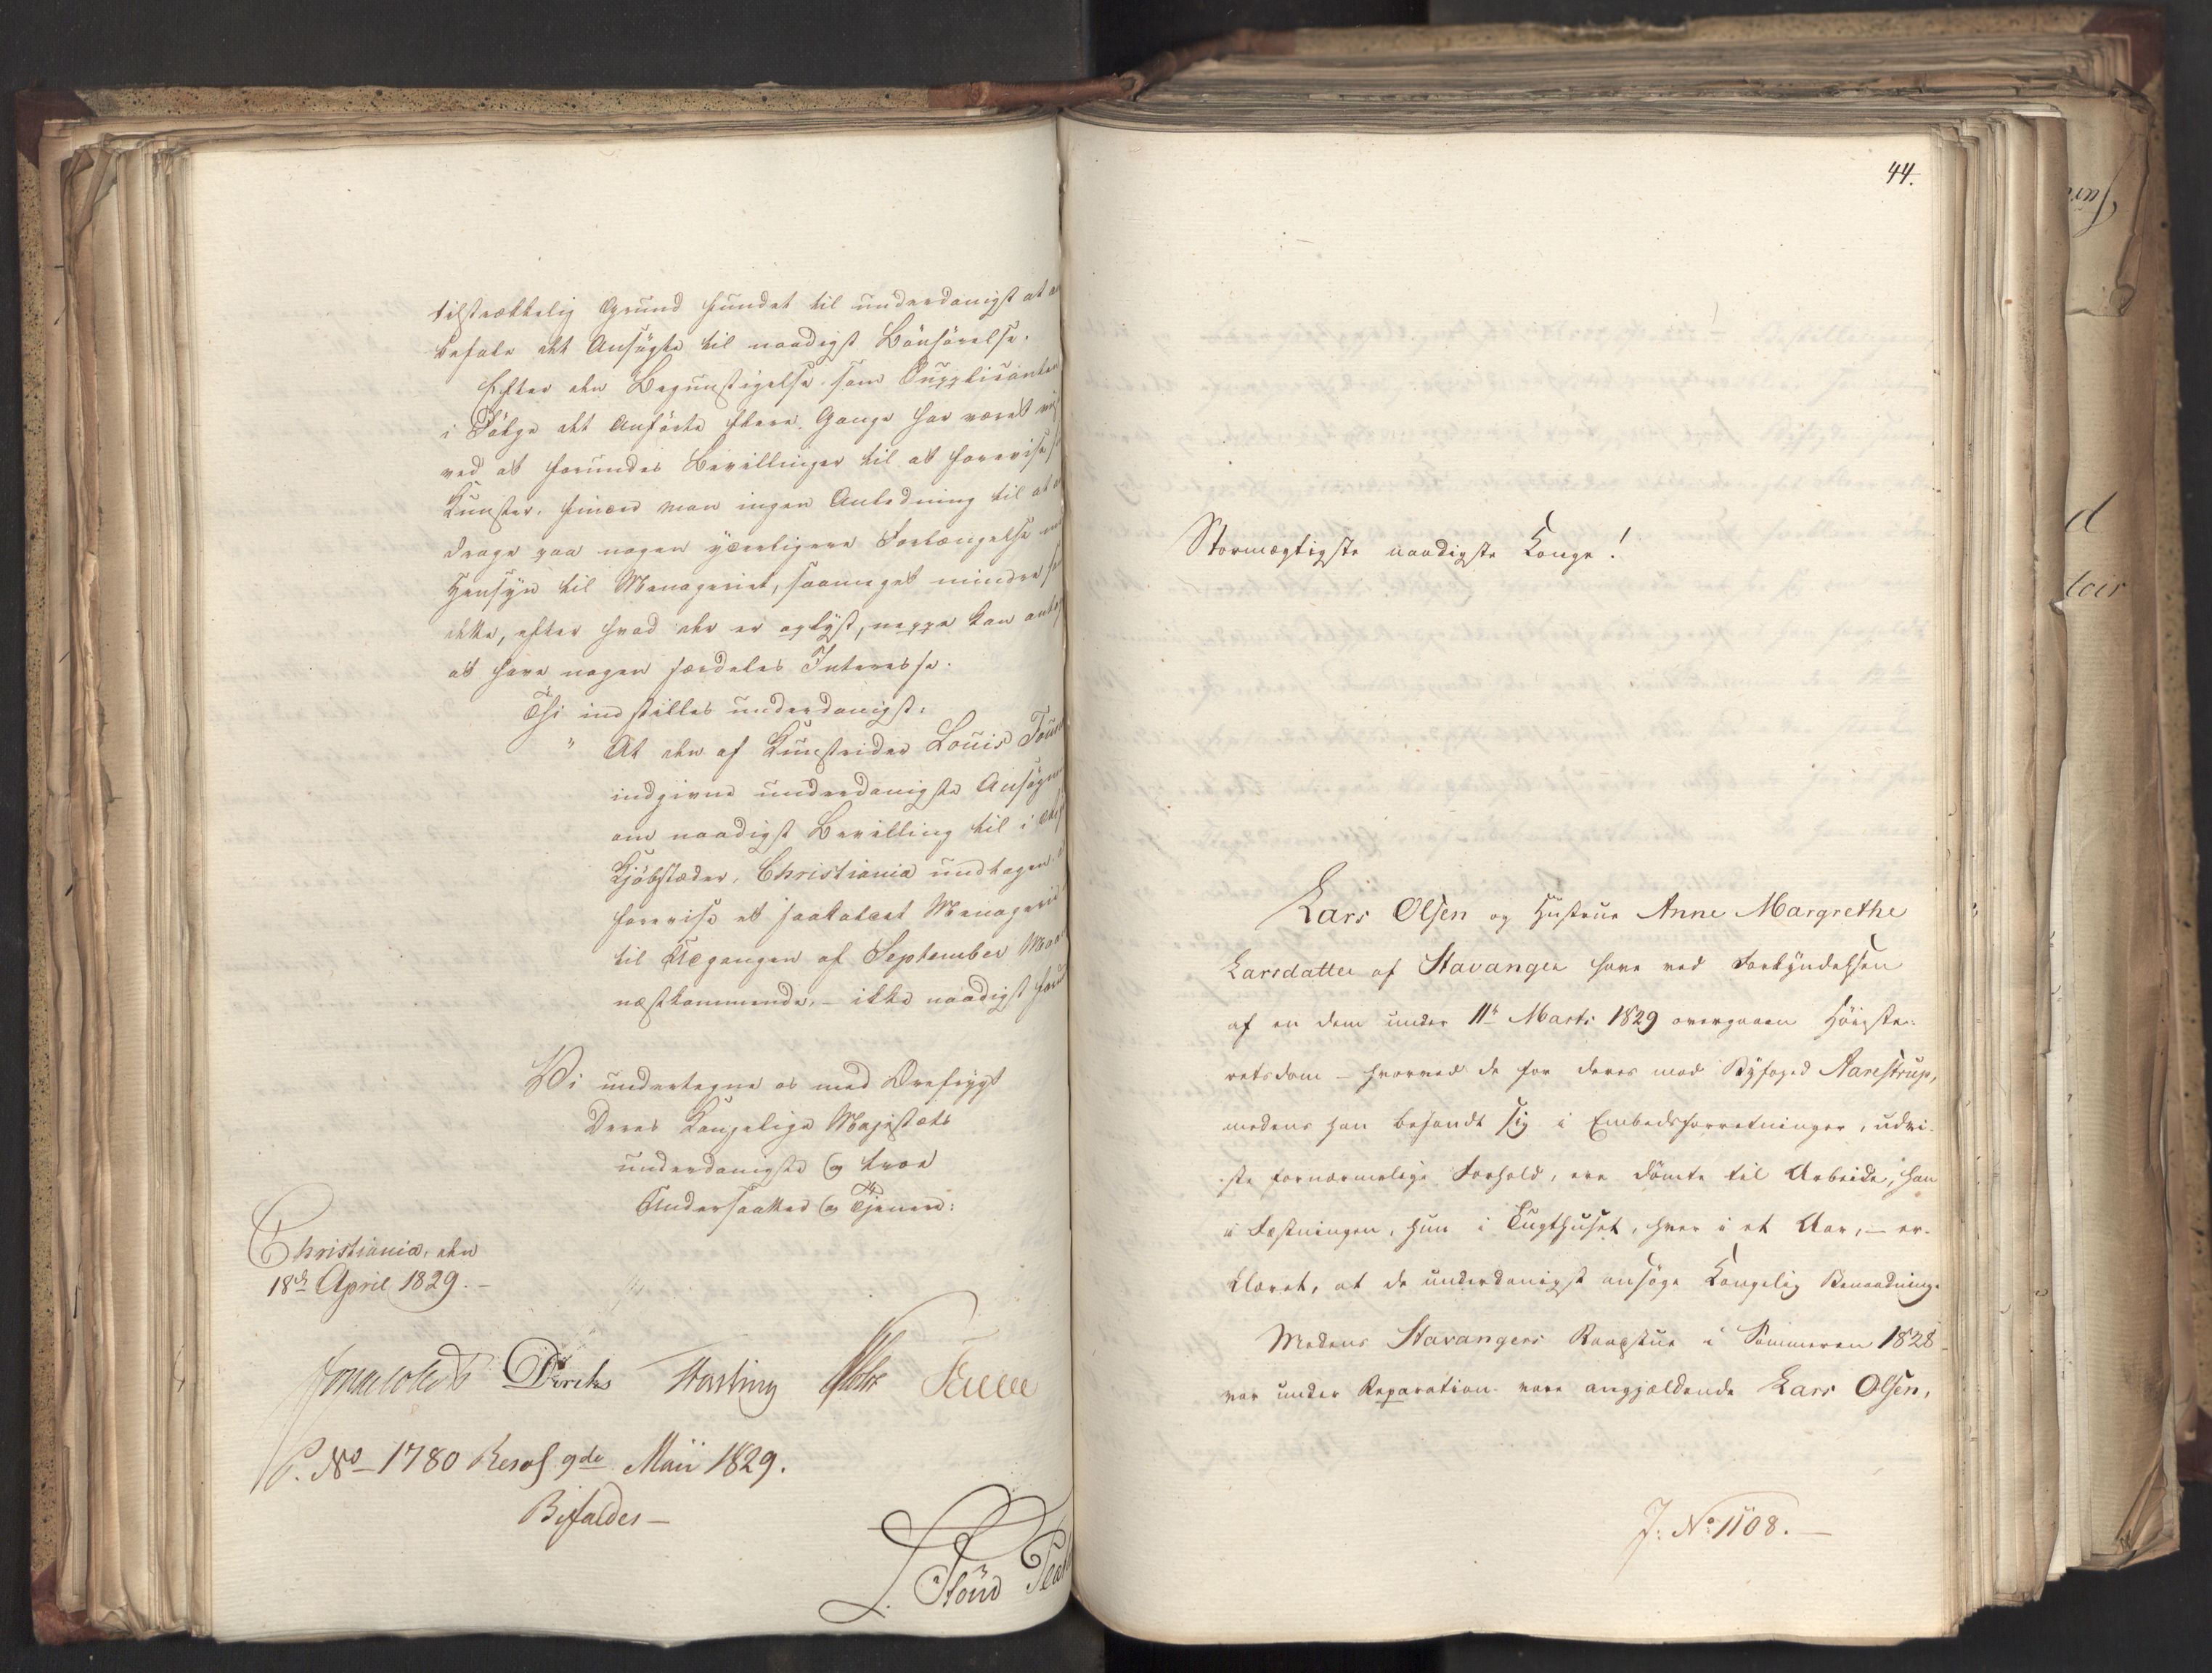 tilstrækkelig Grund fundet til underdanigst at an
befale det Ansøgte til naadigst Bønhørelse.
Efter den Begunstigelse som Supplicanten
i Følge det Anførte flere Gange har været
ved at forundes Bevillinger til at forevise
Kunster, finder man ingen Anledning til at
drage paa nogen yderligere Forlængelse
Hensyn til Menageriet, saameget mindre
dette, efter hvad der er oplyst, neppe kan
at have nogen særdeles Interesse.
Thi indstilles underdanigst:
" At den af Kunstrider Louis
indgivne underdanigste Ansøgn
om naadigst Bevilling til i
Kjøbstæder, Christiania undtagen
forevise et saakaldet Menageri
til Udgangen af September Maa
næstkommende, - ikke naadigst
Vi undertegne os med Ærefrygt
Deres Kongelige Majestæts
underdanigste og troe
Undersaatter og Tjenere:
Christiania, den
18de April 1829. -
Jonas Collett Diriks
P. No 1780 Resol 9de Maii 1829.
Bifaldes -
44.
Stormægtigste naadigste Konge!
Lars Olsen og Hustrue Anne Margrethe
Larsdatter af Stavanger have ved Forkyndelsen
af en dem under 11te Marts 1829 overgaaen Høieste-
retsdom - hvorved de for deres mod Byfoged Aarestrup,
medens han befandt sig i Embedsforretninger, udvi-
ste fornærmelige Forhold, ere dømte til Arbeide, han
i Fæstningen, hun i Tugthuset, hver i et Aar, - er-
klæret, at de underdanigst ansøge Kongelig Benaadning.
Medens Stavangers Raadstue i Sommeren 1828
var under Reparation vare angjældende Lars Olsen,
J: No: 1108. -